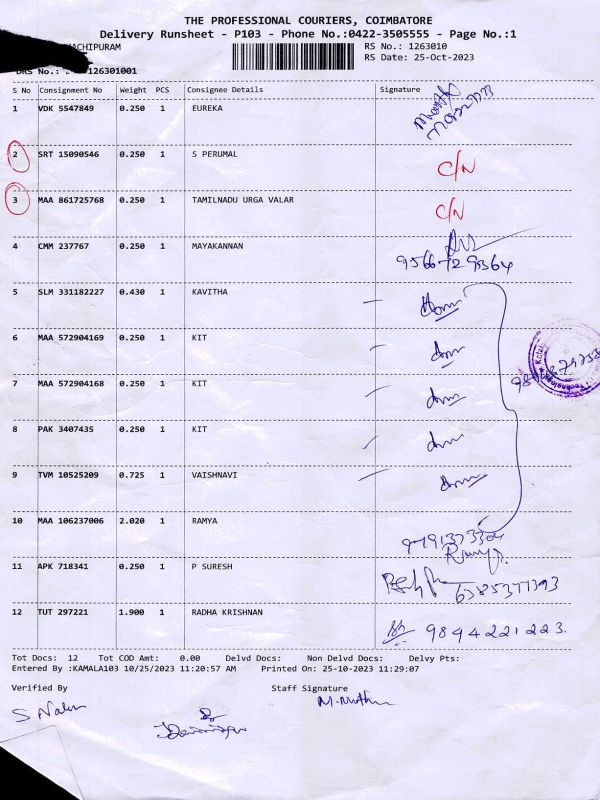 THE PROFESSIONAL COURIERS, COIMBATORE
Delivery Runsheet - P103 - Phone No.:0422-3505555 - Page No.:1
ACHIPURAM
RS No.: 1263010
RS Date: 25-Oct-2023
DRS No.: 126301001
S No Consignment No Weight PCS Consignee Details Signature
1 VDK 5547849 0.250 1 EUREKA
2 SRT 15090546 0.250 1 S PERUMAL C/N
3 MAA 861725768 0.250 1 TAMILNADU URGA VALAR C/N
4 CMM 237767 0.250 1 MAYAKANNAN 9566729364
5 SLM 331182227 0.430 1 KAVITHA
6 MAA 572904169 0.250 1 KIT
7 MAA 572904168 0.250 1 KIT
8 PAK 3407435 0.250 1 KIT
9 TVM 10525209 0.725 1 VAISHNAVI
10 MAA 106237006 2.020 1 RAMYA
11 APK 718341 0.250 1 P SURESH 6385377393
12 TUT 297221 1.900 1 RADHA KRISHNAN 9894221223.
Tot Docs: 12 Tot COD Amt: 0.00 Delvd Docs: Non Delvd Docs: Delvy Pts:
Entered By :KAMALA103 10/25/2023 11:20:57 AM Printed On: 25-10-2023 11:29:07
Verified By Staff Signature
M.Muthu